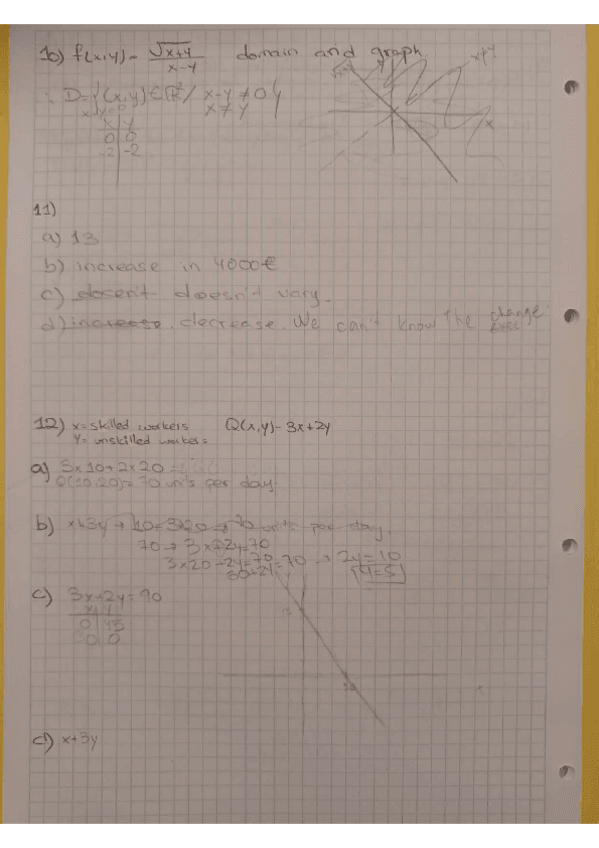 10) f(x,y) = √x+y / x-y domain and graph.
D={(x,y)∈ℝ²/ x-y ≠ 0}
x ≠ y
x-y=0
x | y
0 | 0
-2 | -2
x
11)
a) 13
b) increase in 4000€
c) doesn't doesn't vary.
d) increase. decrease. We can't know the change
12) x= skilled workers Q(x,y)= 3x+2y
y= unskilled workers
a) 3x10+2x20
Q(10,20)= 70 units per day.
b) x+3y → 10+3x20 → 70 units per day.
70 → 3x+2y=70
3x20+2y=70 → 2y=10
60+2y=70 y=5
c) 3x+2y=90
x | y
0 | 45
0
30
d) x+3y